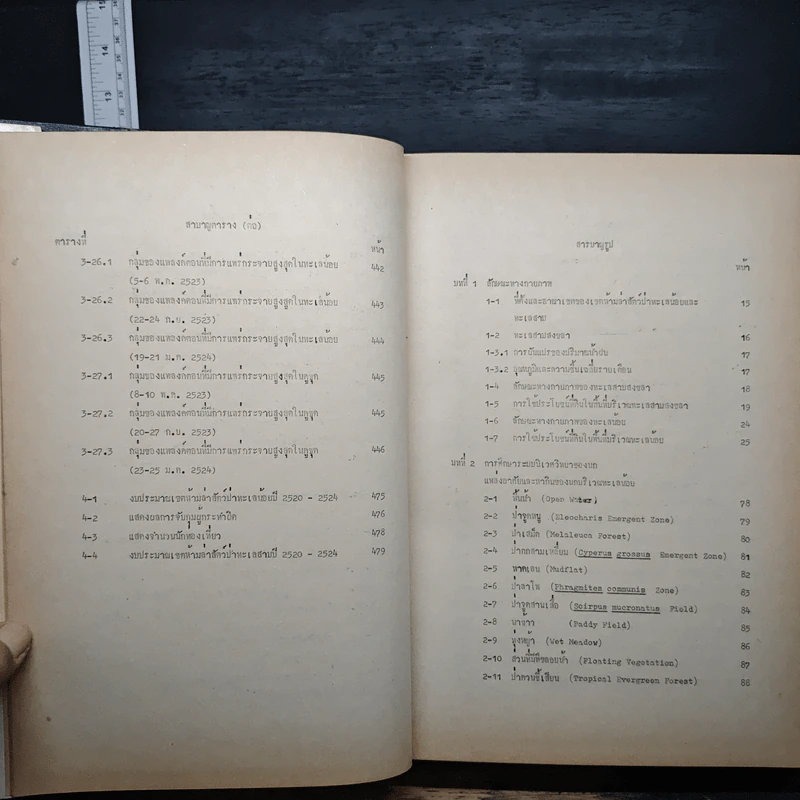 สาบาญตาราง (ต่อ)
ตารางที่
หน้า
3-26.1 กลุ่มของแพลงค์ตอนที่มีการแพร่กระจายสูงสุดในทะเลน้อย 442
(5-6 พ.ค. 2523)
3-26.2 กลุ่มของแพลงค์ตอนที่มีการแพร่กระจายสูงสุดในทะเลน้อย 443
(22-24 ก.ย. 2523)
3-26.3 กลุ่มของแพลงค์ตอนที่มีการแพร่กระจายสูงสุดในทะเลน้อย 444
(19-21 ม.ค. 2524)
3-27.1 กลุ่มของแพลงค์ตอนที่มีการแพร่กระจายสูงสุดในคูขุด 445
(8-10 พ.ค. 2523)
3-27.2 กลุ่มของแพลงค์ตอนที่มีการแพร่กระจายสูงสุดในคูขุด 445
(20-27 ก.ย. 2523)
3-27.3 กลุ่มของแพลงค์ตอนที่มีการแพร่กระจายสูงสุดในคูขุด 446
(23-25 ม.ค. 2524)
4-1 งบประมาณเขตห้ามล่าสัตว์ป่าทะเลน้อยปี 2520 - 2524 475
4-2 แสดงผลการจับกุมผู้กระทำผิด 476
4-3 แสดงจำนวนนักท่องเที่ยว 478
4-4 งบประมาณเขตห้ามล่าสัตว์ป่าทะเลสาบปี 2520 - 2524 479
สารบาญรูป
หน้า
บทที่ 1 ลักษณะทางกายภาพ
1-1 ที่ตั้งและอาณาเขตของเขตห้ามล่าสัตว์ป่าทะเลน้อยและ 15
ทะเลสาบ
1-2 ทะเลสาบสงขลา 16
1-3.1 การผันแปรของปริมาณน้ำฝน 17
1-3.2 อุณหภูมิและความชื้นเฉลี่ยรายเดือน 17
1-4 ลักษณะทางกายภาพของทะเลสาบสงขลา 18
1-5 การใช้ประโยชน์ที่ดินในพื้นที่บริเวณทะเลสาบสงขลา 19
1-6 ลักษณะทางกายภาพของทะเลน้อย 24
1-7 การใช้ประโยชน์ที่ดินในพื้นที่บริเวณทะเลน้อย 25
บทที่ 2 การศึกษาระบบนิเวศวิทยาของนก
แหล่งอาศัยและหากินของนกบริเวณทะเลน้อย
2-1 พื้นน้ำ (Open Water) 78
2-2 ป่าจูดหนู (Eleocharis Emergent Zone) 79
2-3 ป่าเสม็ด (Melaleuca Forest) 80
2-4 ป่ากกสามเหลี่ยม (Cyperus grossus Emergent Zone) 81
2-5 หาดเลน (Mudflat) 82
2-6 ป่าลาโพ (Phragmites communis Zone) 83
2-7 ป่าจูดสานเสื่อ (Scirpus mucronatus Field) 84
2-8 นาข้าว (Paddy Field) 85
2-9 ทุ่งหญ้า (Wet Meadow) 86
2-10 ส่วนที่มีพืชลอยน้ำ (Floating Vegetation) 87
2-11 ป่าควนขี้เสียน (Tropical Evergreen Forest) 88
15
14
13